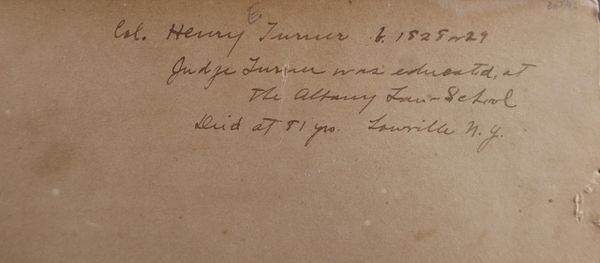 Col. Henry E. Turner b. 1828 or 29
Judge Turner was educated, at
The Albany Law-School
Died at 81 yrs. Lowville N.Y.